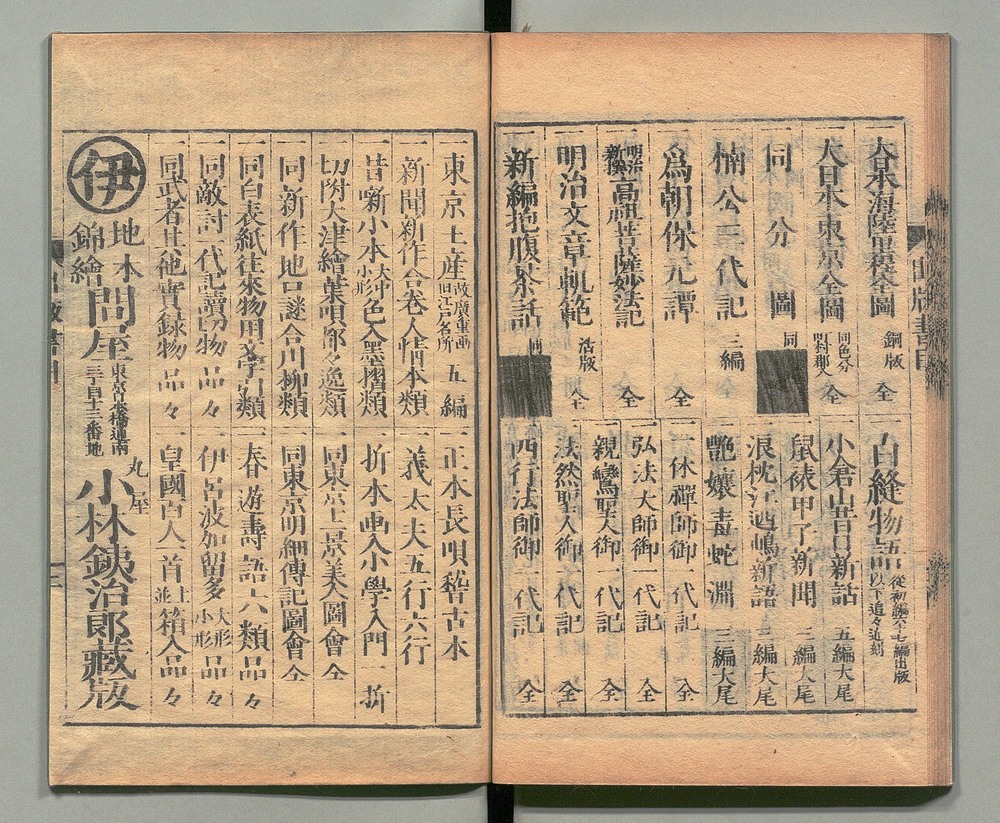 大日本海陸里程全圖 銅版 全
大日本東京全圖 同色分 全
同 分圖 同
楠公三代記 三編 全
爲朝保元譚 全
明治新撰 高祖菩薩妙法記 全
明治文章軌範 活版 全
新編抱腹茶話 同
白縫物語 從初編六十七編出版 以下追々近刻
小倉山昔日新話 五編大尾
鼠裱甲子新聞 三編大尾
浪枕江の嶋新語 三編大尾
艶孃毒蛇淵 三編大尾
一休禪師御一代記 全
弘法大師御一代記 全
親鸞聖人御一代記 全
法然聖人御一代記 全
西行法師御一代記 全
出版書目
一東京土産 故廣重画 旧江戸名所 五編
一新聞新作合卷人情本類
一昔噺小本 大中小形 色入墨摺類
一切附大津繪葉唄都々逸類
一同新作地口謎合川柳類
一同白表紙往來物用文字引類
一同敵討一代記讀切物 品々
一同武者其他實録物 品々
一正本長唄稽古本
一義太夫五行六行
一折本画入小學入門 一折
一同東京十二景美人圖會 全
一同東京明細傳記圖會 全
一春遊壽語六類品々
一伊呂波加留多 大形小形 品々
一皇國百人一首 箱入品々
伊 地本 錦繪 問屋 東京京橋通南二丁目十三番地
丸屋 小林銕治郎藏版